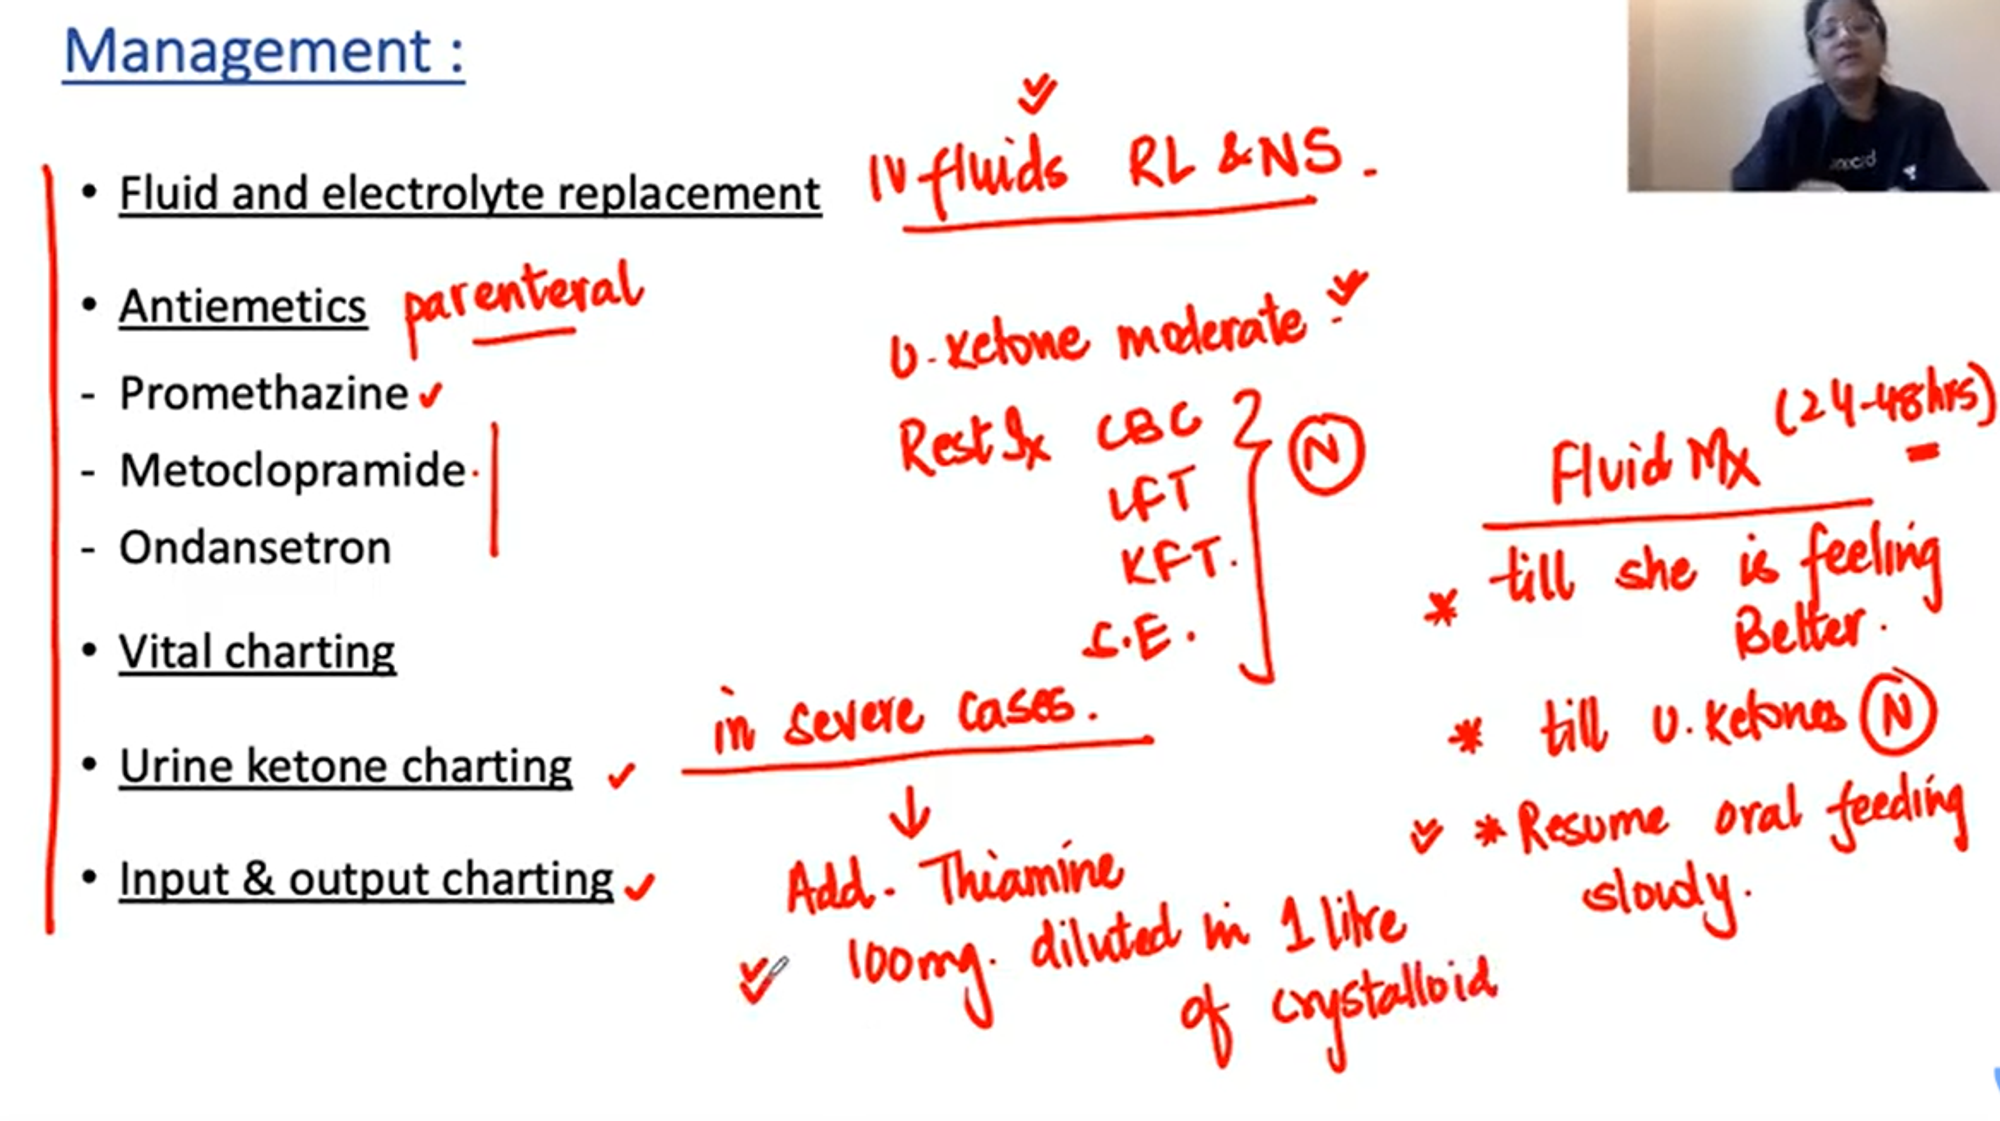 Management :
• Fluid and electrolyte replacement
IV fluids RL & NS.
• Antiemetics parenteral
- Promethazine
- Metoclopramide
- Ondansetron
• Vital charting
• Urine ketone charting
• Input & output charting
U. Ketone moderate
Rest Ix CBC
LFT
KFT.
S.E.
N
in severe cases.
Add. Thiamine
100mg. diluted in 1 litre
of crystalloid
(24-48hrs)
Fluid Mx
* till she is feeling
Better.
* till U. Ketones N
* Resume oral feeding
slowly.